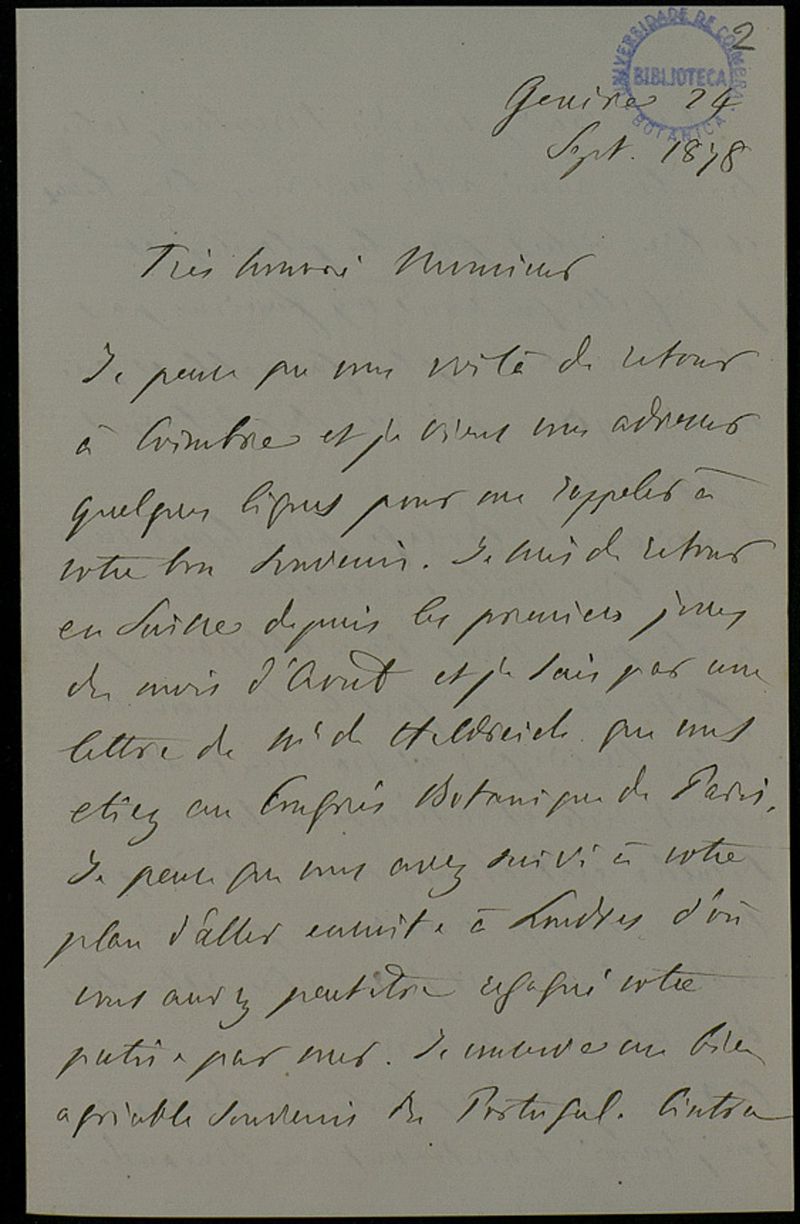 2
UNIVERSIDADE DE COIMBRA
BIBLIOTECA
BOTANICA
Genève 24
Sept. 1878
Très honoré Monsieur
Je pense que vous voilà de retour
à Coimbre et je viens vous adresser
quelques lignes pour me rappeler à
votre bon souvenir. Je suis de retour
en Suisse depuis les premiers jours
du mois d'Aout et je sais par une
lettre de Mr de Heldreich que vous
etiez au Congrès Botanique de Paris.
Je pense que vous avez suivi à votre
plan d'aller ensuite à Londres d'où
vous aurez peutetre regagné votre
patrie par mer. Je conserve un bien
agréable souvenir du Portugal. Cintra